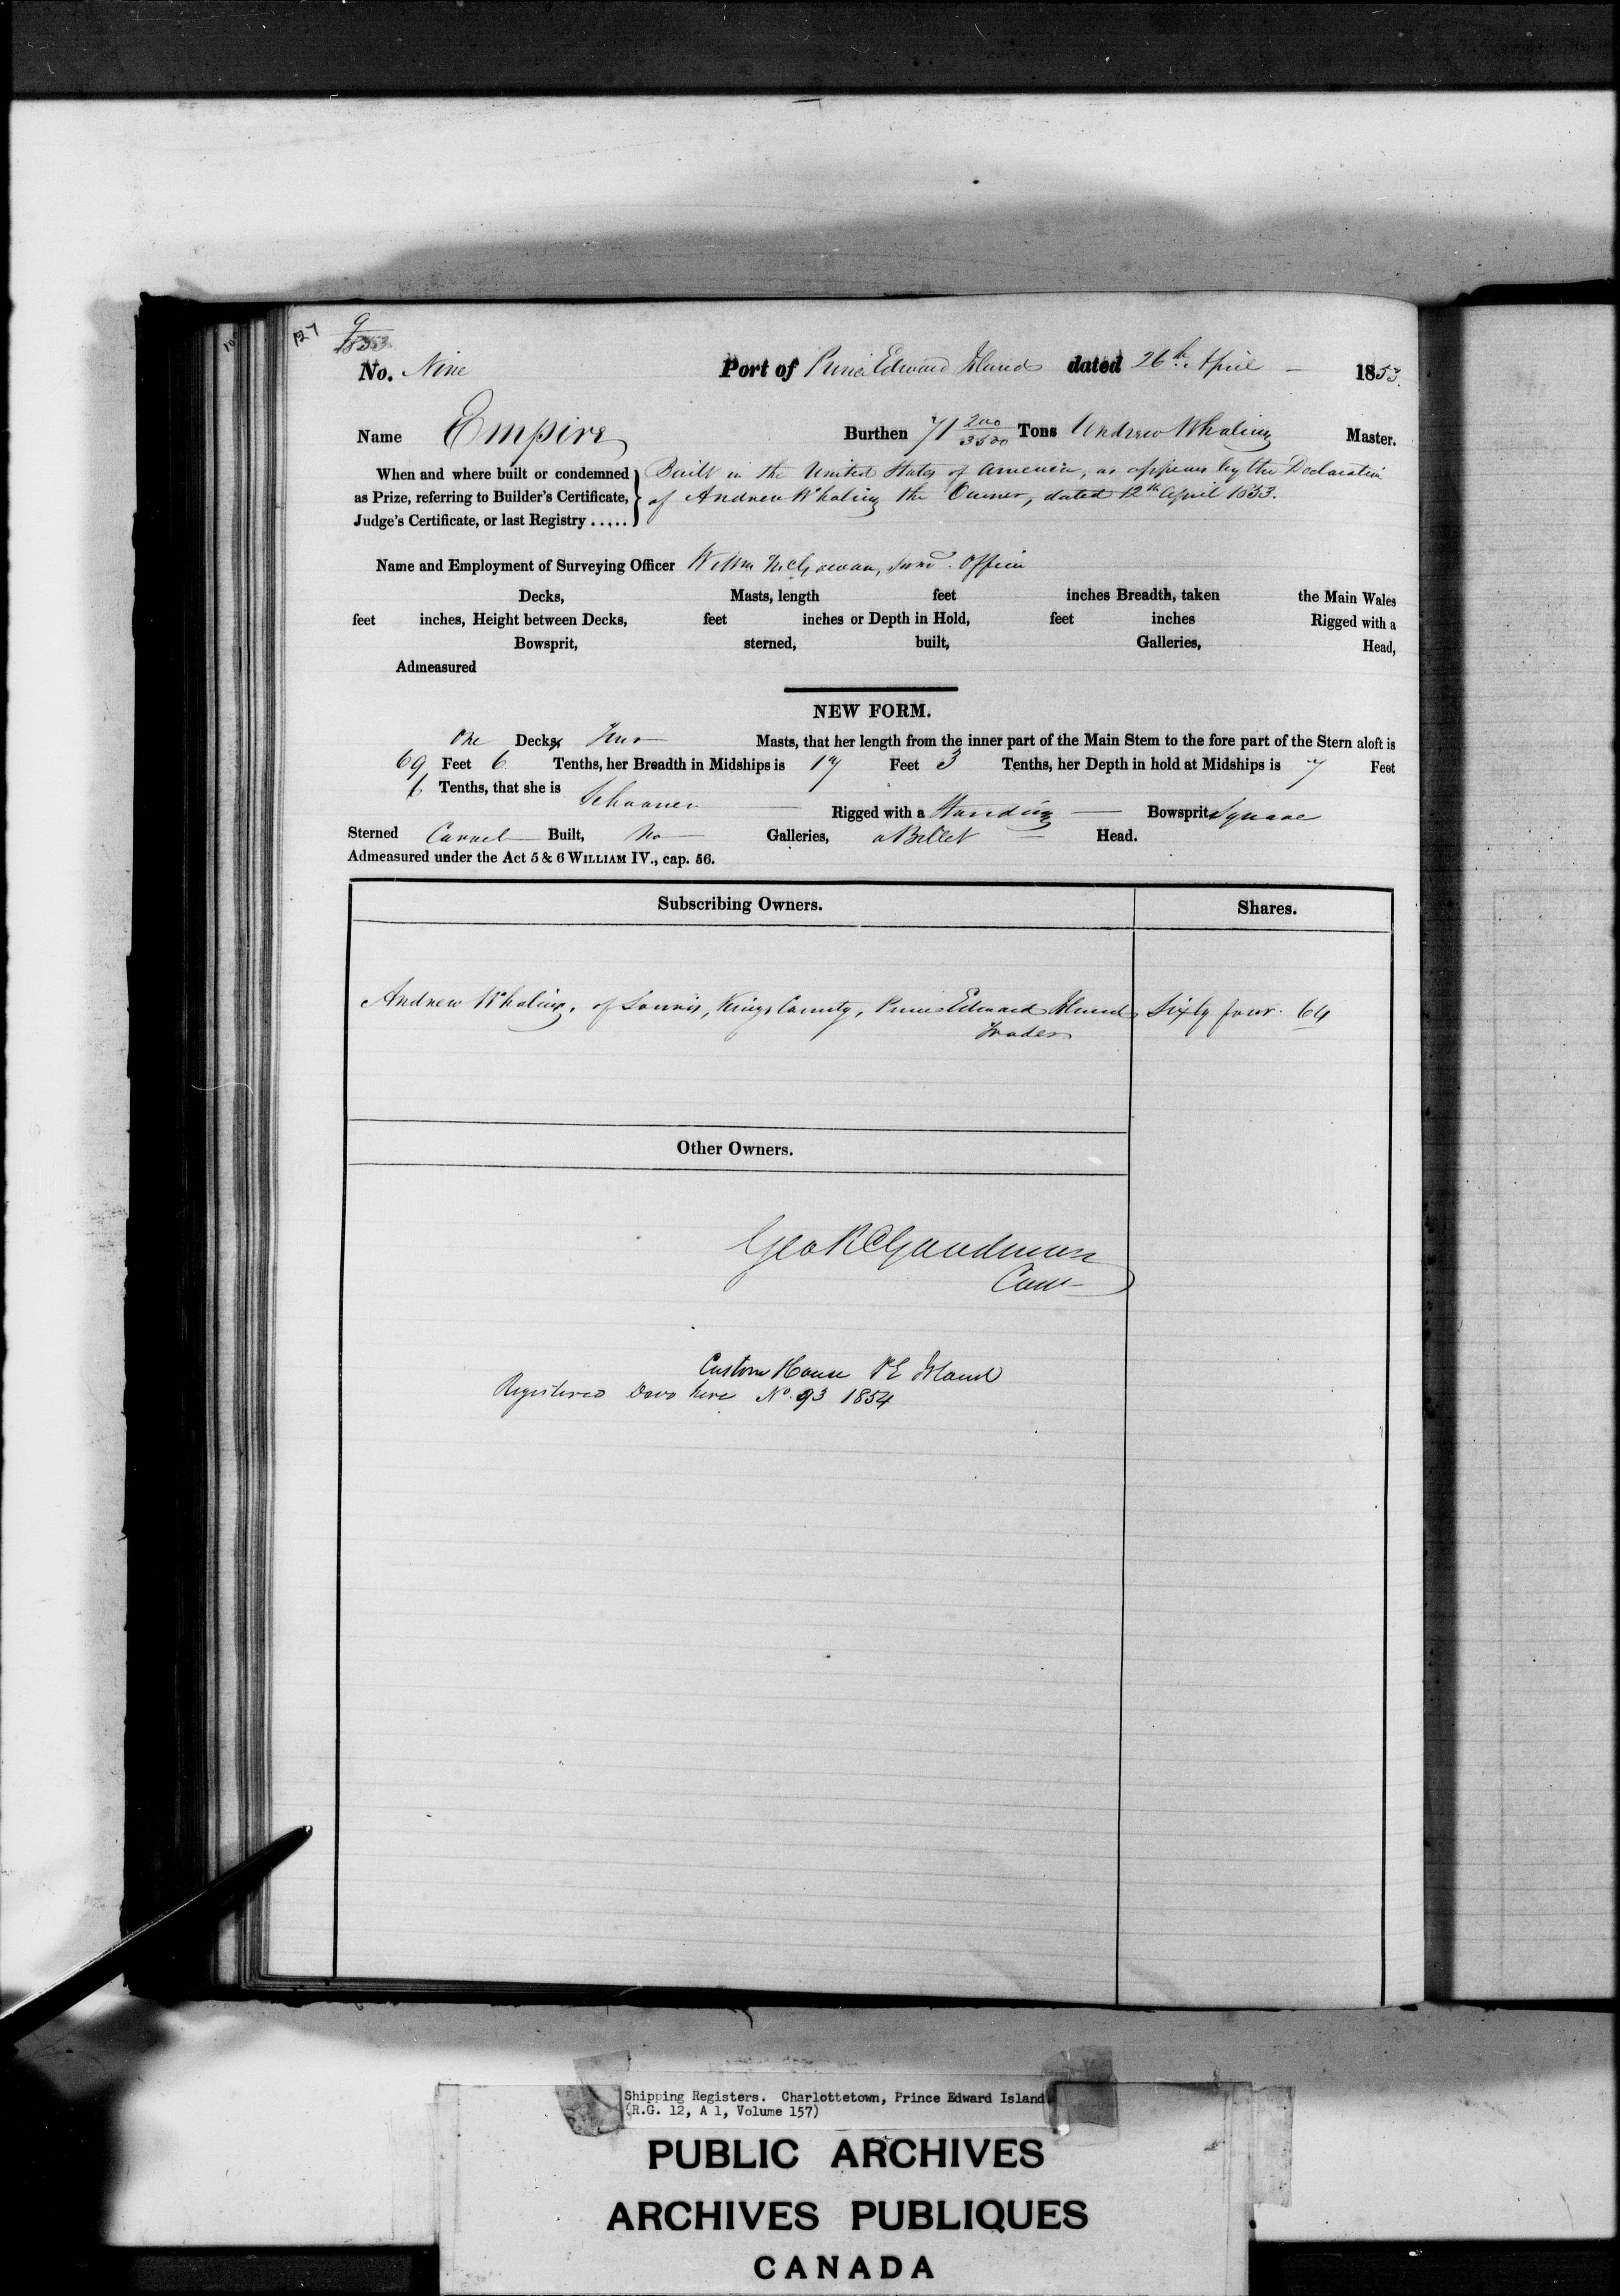 127
9
1853
No. Nine Port of Prince Edward Island dated 26th April 1853.
Name Empire Burthen 71 200/3500 Tons Andrew Whaling Master.
When and where built or condemned
as Prize, referring to Builder's Certificate,
Judge's Certificate, or last Registry .....
Built in the United States of America, as appears by the Declaration
of Andrew Whaling the Owner, dated 12th April 1853.
Name and Employment of Surveying Officer Willm McGowan, Officer
Decks, Masts, length feet inches Breadth, taken the Main Wales
feet inches, Height between Decks, feet inches or Depth in Hold, feet inches Rigged with a
Bowsprit, sterned, built, Galleries, Head,
Admeasured
NEW FORM.
One Decks, Two Masts, that her length from the inner part of the Main Stem to the fore part of the Stern aloft is
69 Feet 6 Tenths, her Breadth in Midships is 17 Feet 3 Tenths, her Depth in hold at Midships is 7 Feet
Tenths, that she is Schooner Rigged with a Standing Bowsprit, Square
Sterned Carvel Built, No Galleries, a Billet Head.
Admeasured under the Act 5 & 6 WILLIAM IV., cap. 56.
Subscribing Owners. Shares.
Andrew Whaling, of Souris, Kings County, Prince Edward Island Sixty four. 64
Trader
Other Owners.
Geo R Goodman
Custom House PE Island
Registered Novo here No. 93 1854
Shipping Registers. Charlottetown, Prince Edward Island
(R.G. 12, A 1, Volume 157)
PUBLIC ARCHIVES
ARCHIVES PUBLIQUES
CANADA